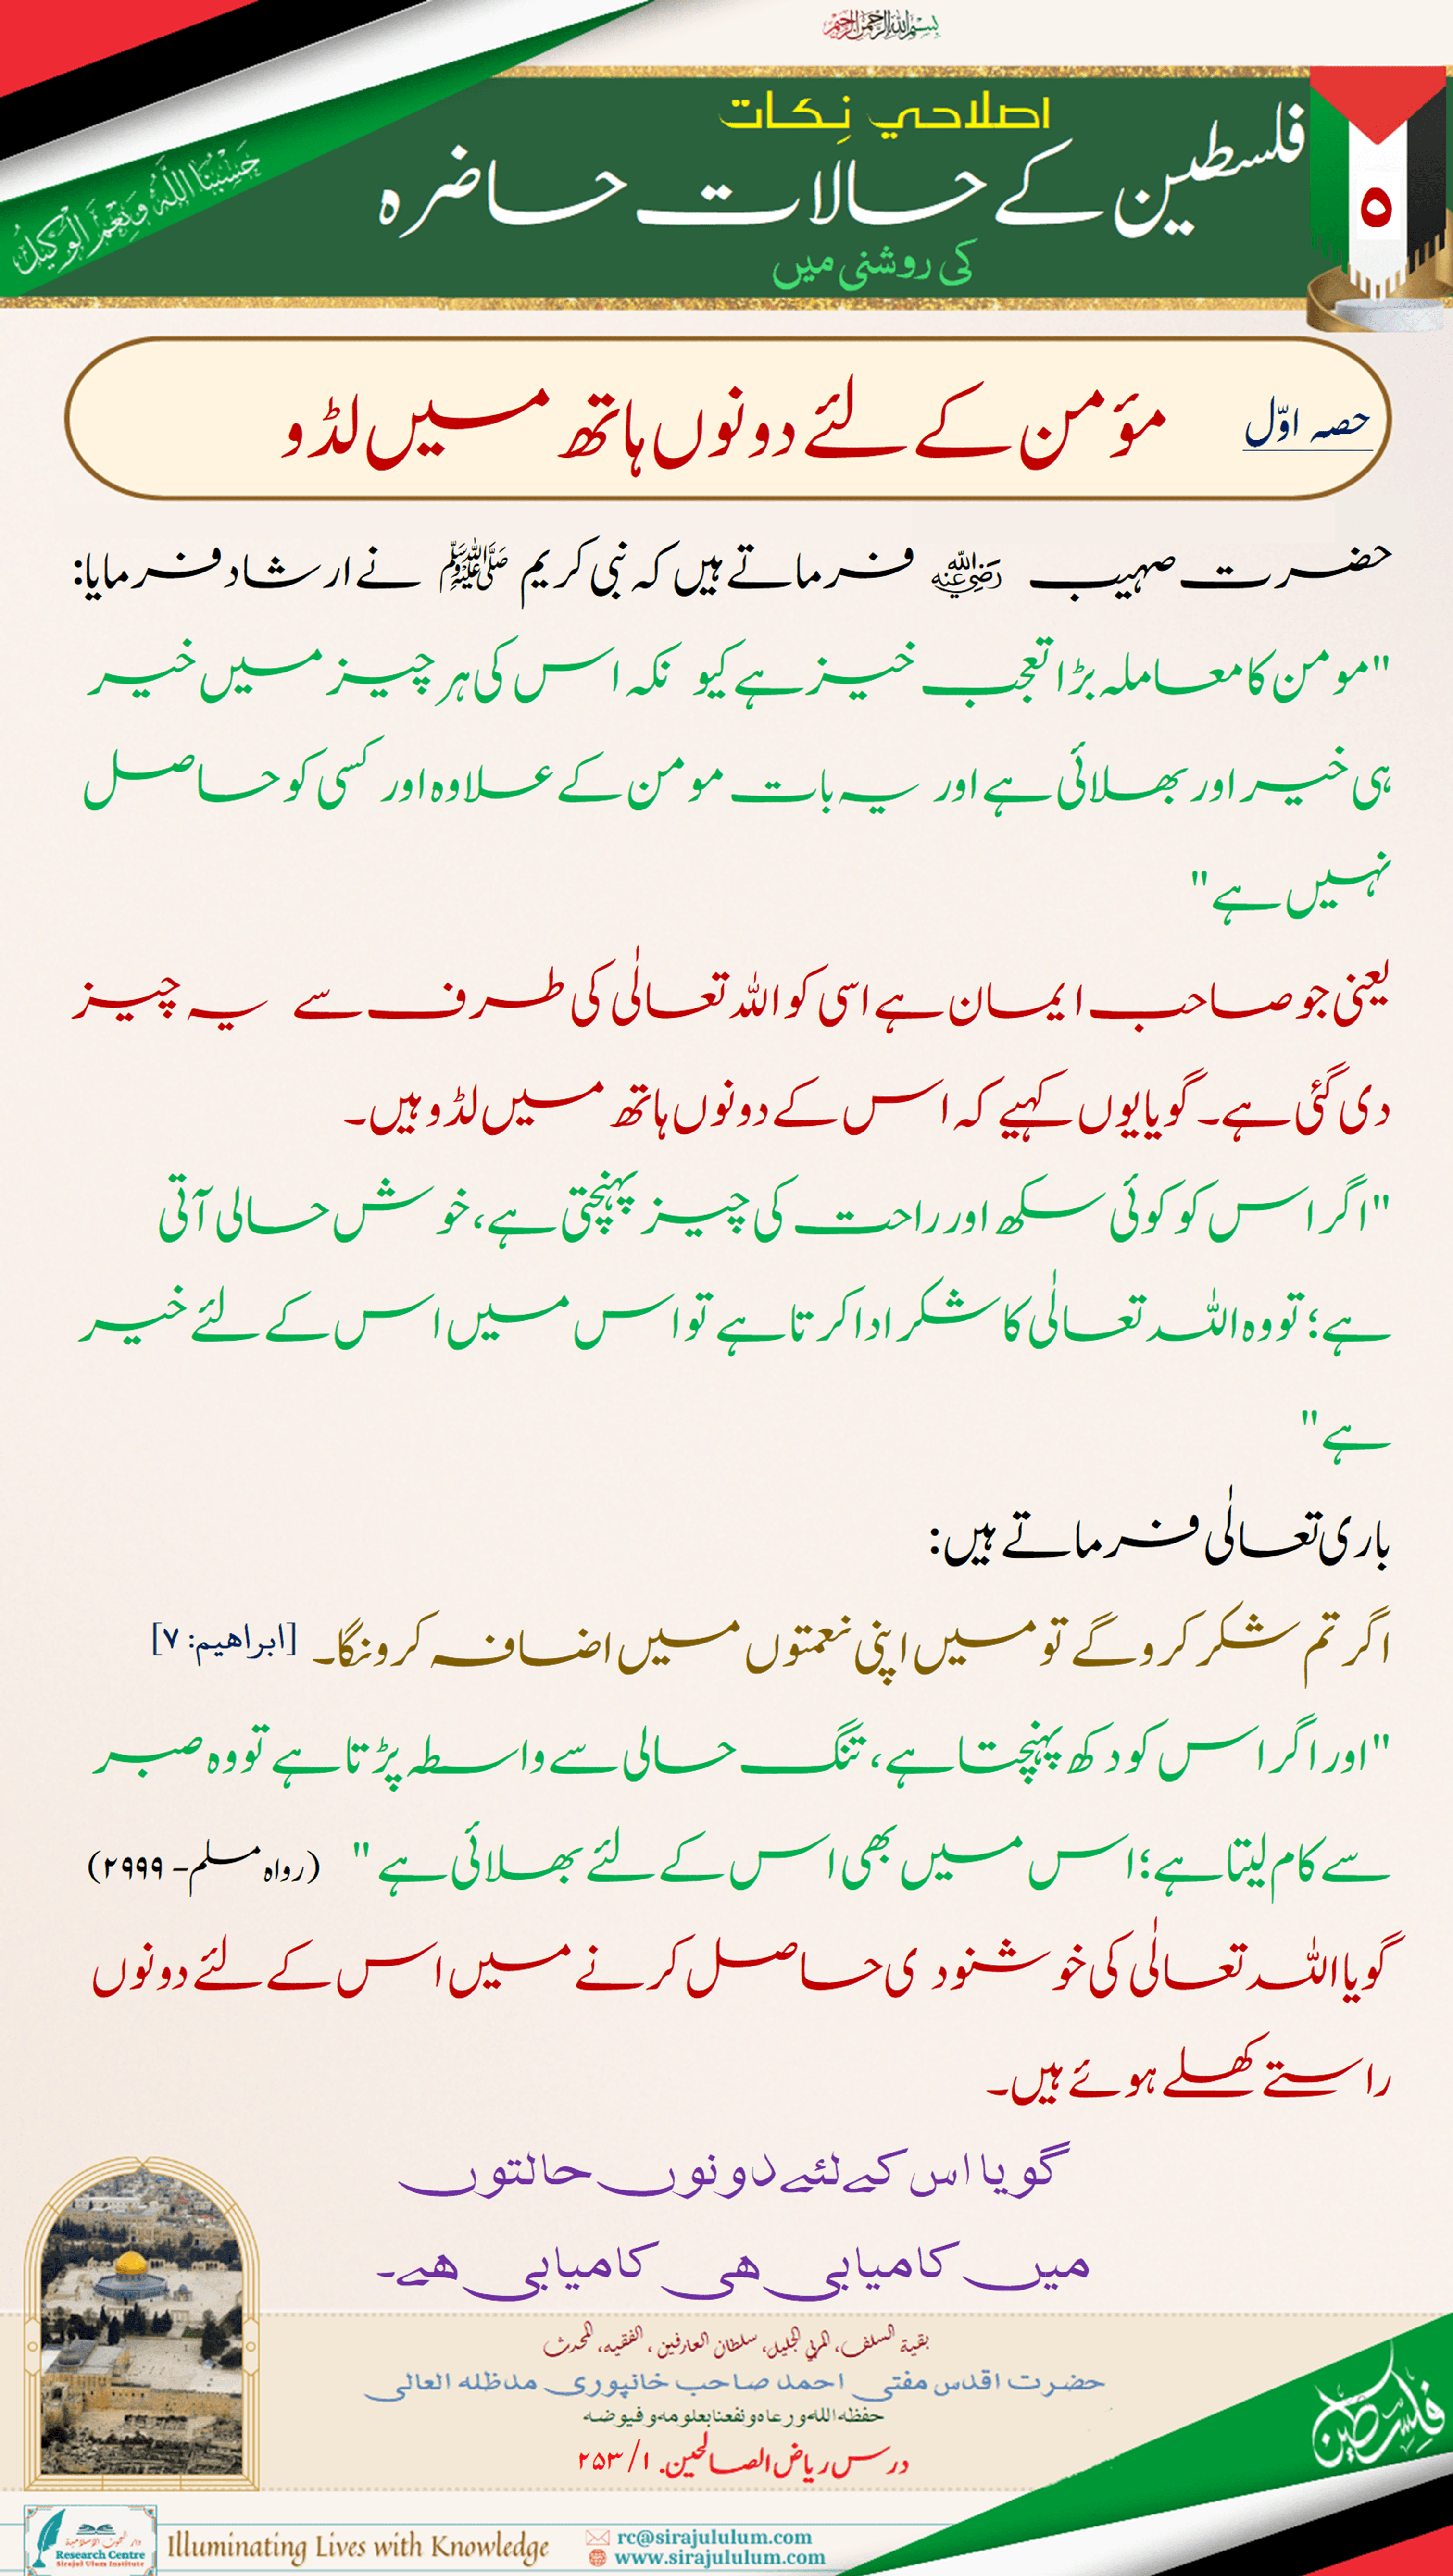 بسم الله الرحمن الرحيم
حَسْبُنَا اللَّهُ وَنِعْمَ الْوَكِيلُ
اصلاحي نِکات
فلسطین کے حالات حاضرہ
کی روشنی میں
۵
حصہ اوّل
مؤمن کے لئے دونوں ہاتھ میں لڈو
حضرت صہیب رضي الله عنه فرماتے ہیں کہ نبی کریم ﷺ نے ارشاد فرمایا:
"مومن کا معاملہ بڑا تعجب خیز ہے کیو نکہ اس کی ہر چیز میں خیر
ہی خیر اور بھلائی ہے اور یہ بات مومن کے علاوہ اور کسی کو حاصل
نہیں ہے"
یعنی جو صاحب ایمان ہے اسی کو اللہ تعالٰی کی طرف سے یہ چیز
دی گئی ہے۔ گویا یوں کہیے کہ اس کے دونوں ہاتھ میں لڈو ہیں۔
"اگر اس کو کوئی سکھ اور راحت کی چیز پہنچتی ہے، خوش حالی آتی
ہے؛ تو وہ اللہ تعالٰی کا شکر ادا کرتا ہے تو اس میں اس کے لئے خیر
ہے"
باری تعالٰی فرماتے ہیں:
اگر تم شکر کروگے تو میں اپنی نعمتوں میں اضافہ کرونگا۔ [ابراھیم: ۷]
"اور اگر اس کو دکھ پہنچتا ہے، تنگ حالی سے واسطہ پڑتا ہے تو وہ صبر
سے کام لیتا ہے؛ اس میں بھی اس کے لئے بھلائی ہے" (رواہ مسلم- ۲۹۹۹)
گویا اللہ تعالٰی کی خوشنودی حاصل کرنے میں اس کے لئے دونوں
راستے کھلے ہوئے ہیں۔
گویا اس کے لئے دونوں حالتوں
میں کامیابی ھی کامیابی ھے۔
بقیة السلف، المربي الجلیل، سلطان العارفین، الفقیه، المحدث
حضرت اقدس مفتی احمد صاحب خانپوری مدظلہ العالی
حفظه الله ورعاه ونفعنا بعلومه وفیوضه
درس ریاض الصالحین. ۱/ ۲۵۳
فلسطین
دار البحوث الإسلامية
Research Centre
Sirajul Ulum Institute
Illuminating Lives with Knowledge
rc@sirajululum.com
www.sirajululum.com